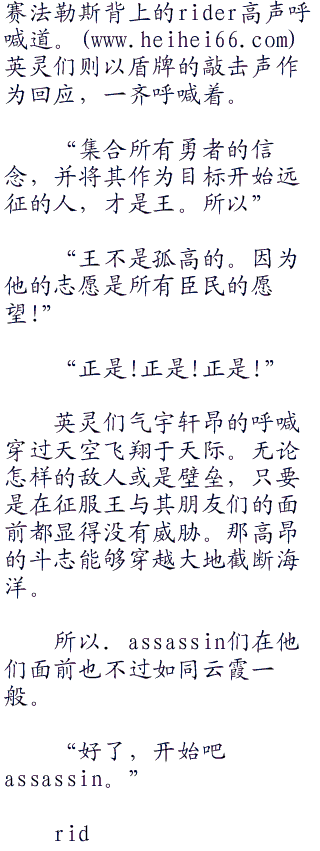 赛法勒斯背上的rider高声呼
喊道。(www.heihei66.com)
英灵们则以盾牌的敲击声作
为回应，一齐呼喊着。
“集合所有勇者的信
念，并将其作为目标开始远
征的人，才是王。所以”
“王不是孤高的。因为
他的志愿是所有臣民的愿
望!”
“正是!正是!正是!”
英灵们气宇轩昂的呼喊
穿过天空飞翔于天际。无论
怎样的敌人或是壁垒，只要
是在征服王与其朋友们的面
前都显得没有威胁。那高昂
的斗志能够穿越大地截断海
洋。
所以．assassin们在他
们面前也不过如同云霞一
般。
“好了，开始吧
assassin。”
rid